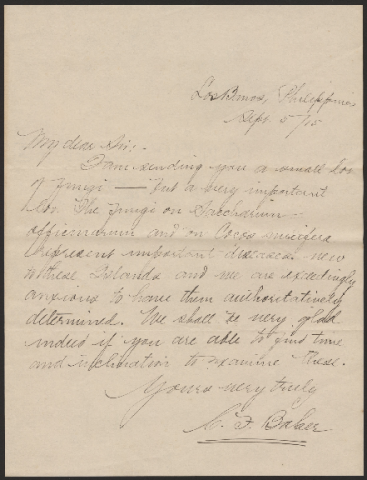 Los Banos, Philippines
Sept 5/15
My dear Sir:-
I am sending you a small lot
of Fungi — but a very important
lot. The Fungi on Saccharum
officinarum and on Cocos nucifera
represent important diseases new
to these Islands and we are exceedingly
anxious to have them authoritatively
determined. We shall be very glad
indeed if you are able to find time
and inclination to examine these.
Yours very truly
C. F. Baker